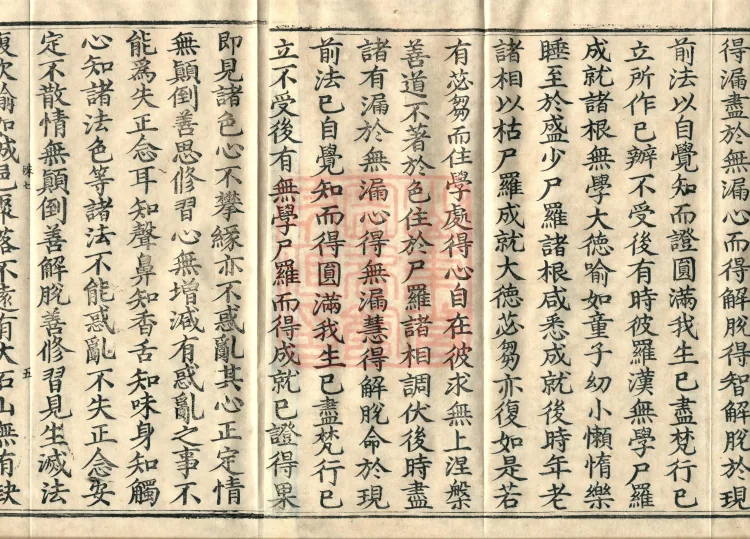 得漏盡於無漏心而得解脫得智解脫於現
前法以自覺知而證圓滿我生已盡梵行已
立所作已辦不受後有時彼羅漢無學尸羅
成就諸根無學大德喻如童子幼小懶惰樂
睡至於盛少尸羅諸根咸悉成就後時年老
諸相以枯尸羅成就大德苾芻亦復如是若
有苾芻而住學處得心自在彼求無上涅槃
善道不著於色住於尸羅諸相調伏後時盡
諸有漏於無漏心得無漏慧得解脫命於現
前法已自覺知而得圓滿我生已盡梵行已
立不受後有無學尸羅而得成就已證得果
即見諸色心不攀緣亦不惑亂其心正定情
無顛倒善思修習心無增減有惑亂之事不
能為失正念耳知聲鼻知香舌知味身知觸
心知諸法色等諸法不能惑亂不失正念安
定不散情無顛倒善解脫善修習見生滅法
復次喻如城邑聚落不遠有大石山無有缺